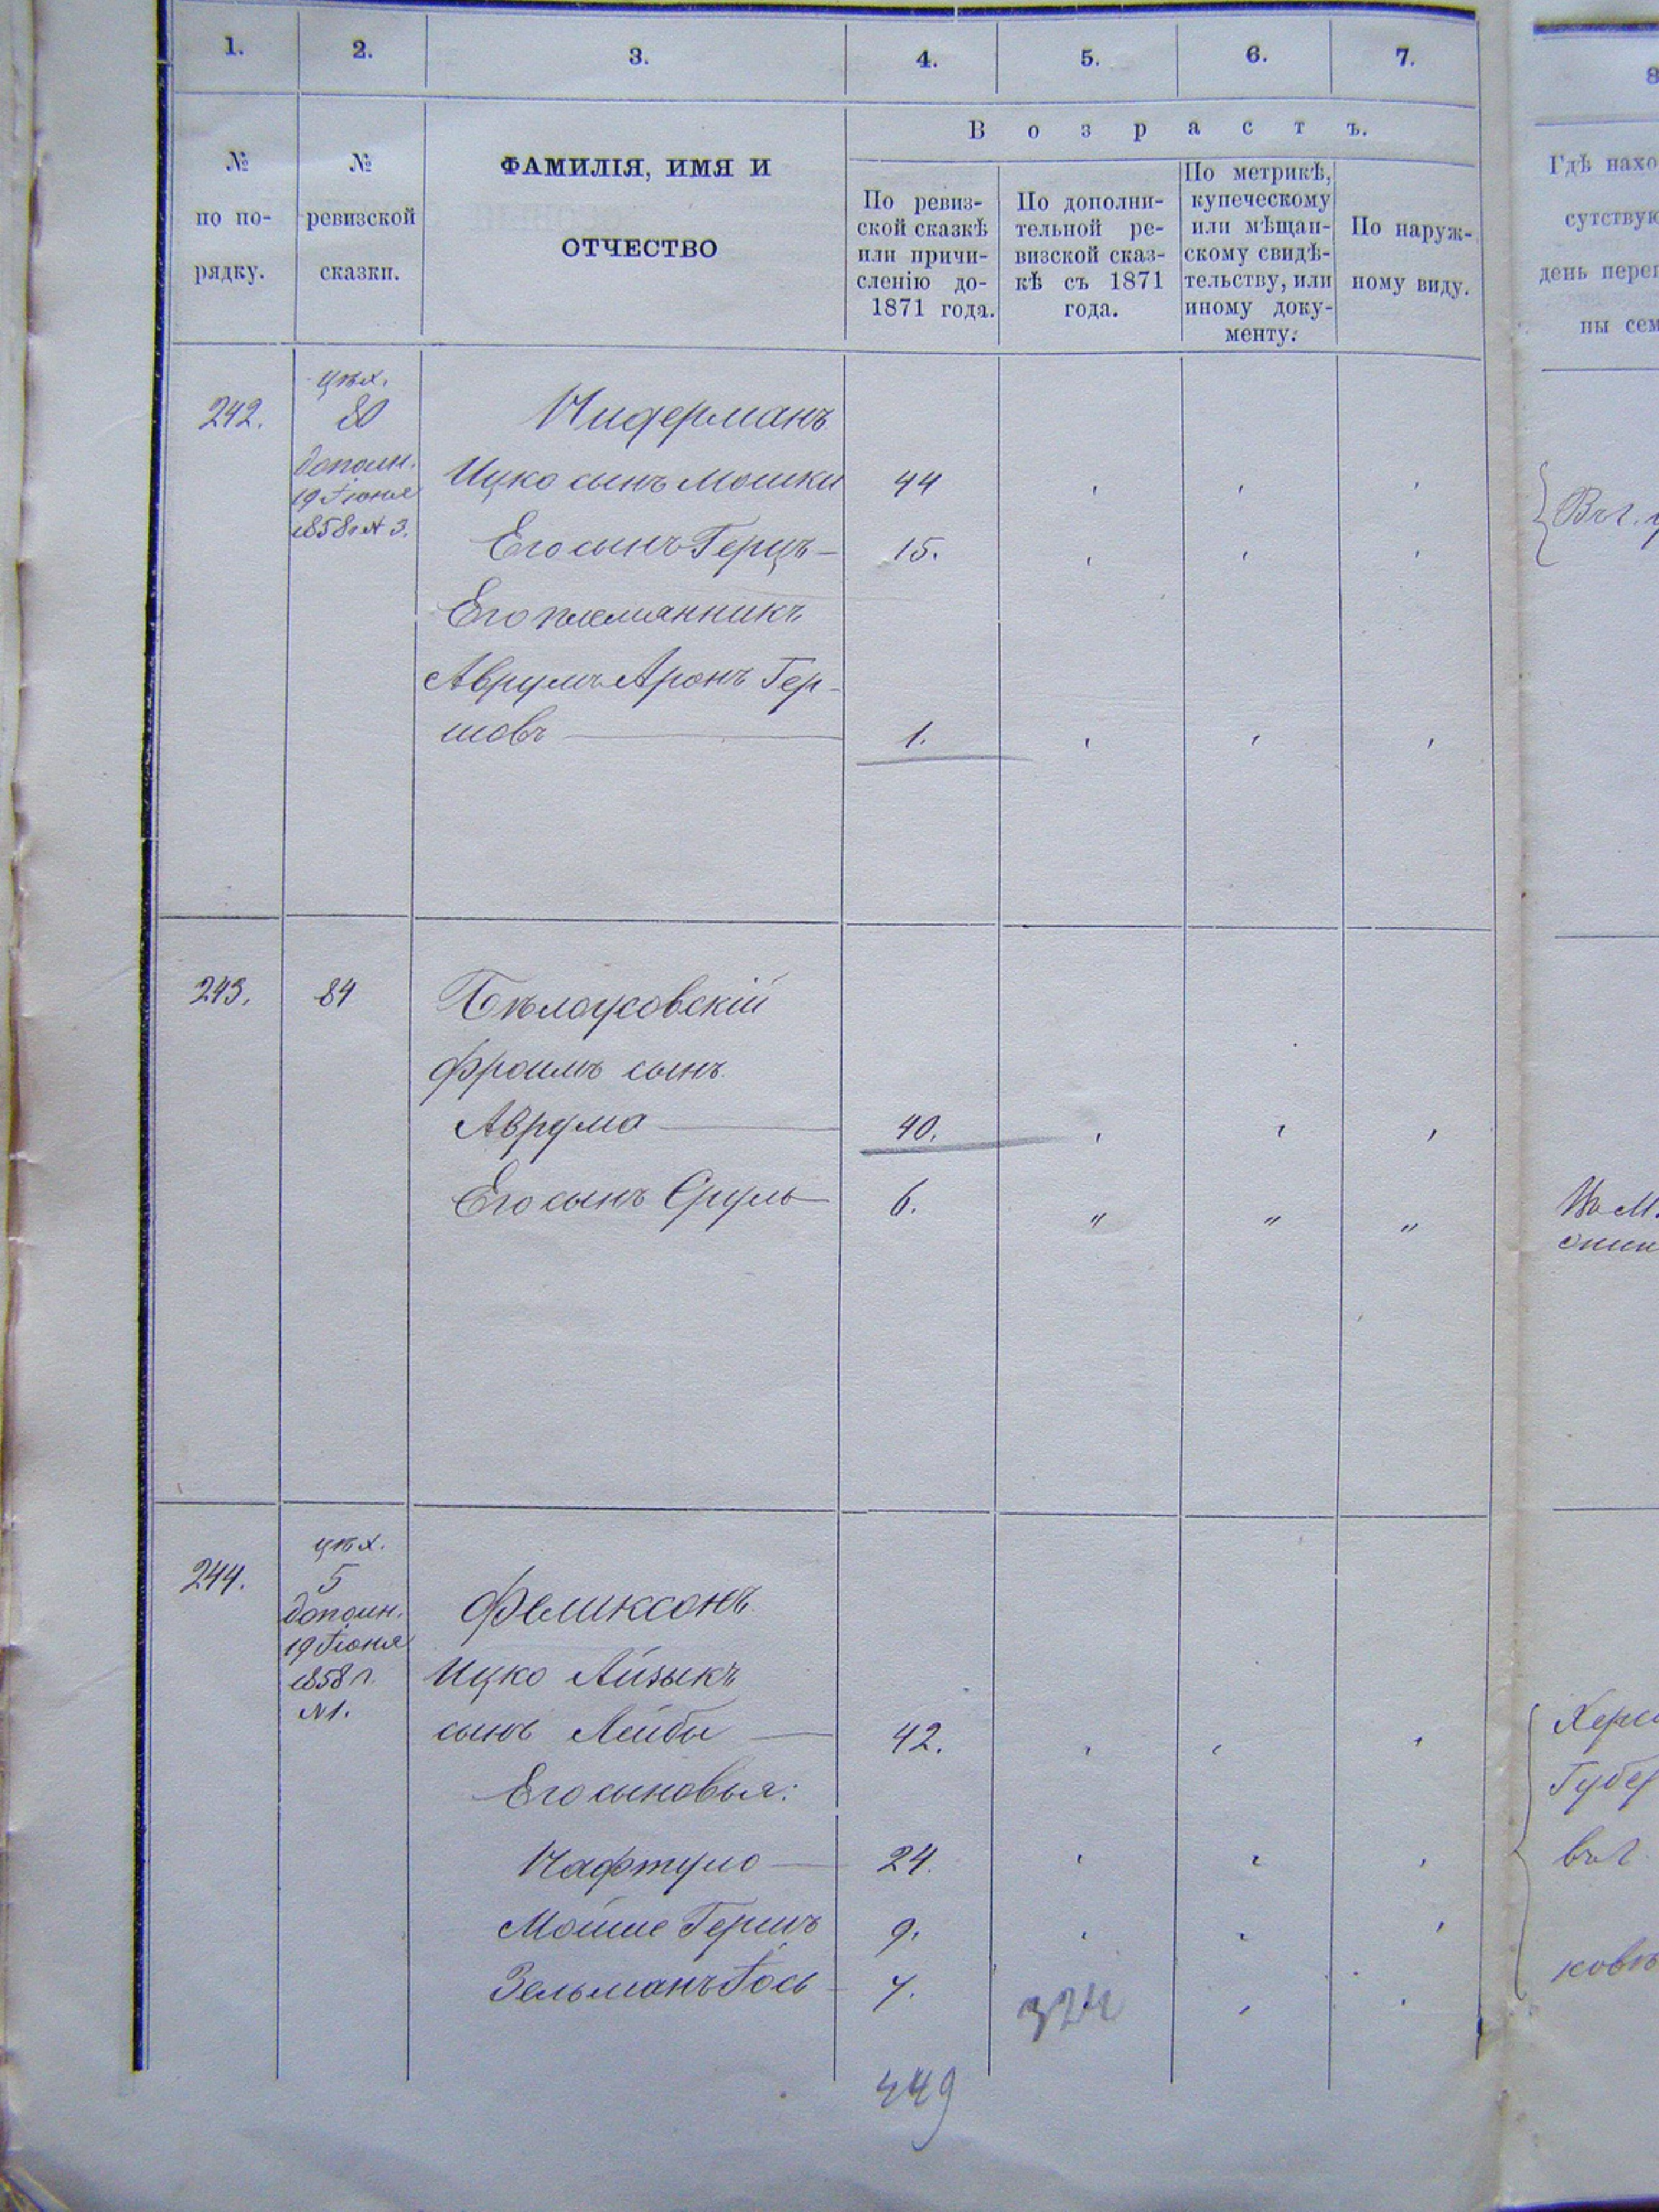 1. 2. 3. 4. 5. 6. 7. 8
№
по по-
рядку.
№
ревизской
сказки.
ФАМИЛІЯ, ИМЯ И
ОТЧЕСТВО
Возрастъ.
По ревиз-
ской сказкѣ
или причи-
сленію до-
1871 года.
По дополни-
тельной ре-
визской сказ-
кѣ съ 1871
года.
По метрикѣ,
купеческому
или мѣщан-
скому свидѣ-
тельству, или
иному доку-
менту.
По наруж-
ному виду.
Гдѣ нахо
сутствую
день переп
ны сем
242.
цех.
80
дополн.
19 Іюня
1858 г N 3.
Нидерманъ
Ицко сынъ Мошки 44
Его сынъ Герцъ — 15.
Его племянникъ
Аврумъ Аронъ Гер-
шовъ — 1.
Въ г.
243. 84 Бѣлоусовскій
Фроимъ сынъ
Аврума — 40.
Его сынъ Сруль — 6. " " "
Въ М.
244.
цех.
5
дополн.
19 Іюня
1858 г.
N 1.
Феликсонъ
Ицко Айзыкъ
сынъ Лейбы — 42.
Его сыновья:
Нафтуло — 24.
Мойше Гершъ 9.
Зельманъ Іось — 7.
Херс
Губер
въ г.
ковъ
324
449